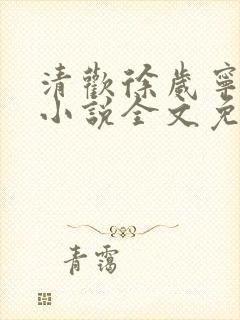 清歡徐歲寧
小說全文免
青靄